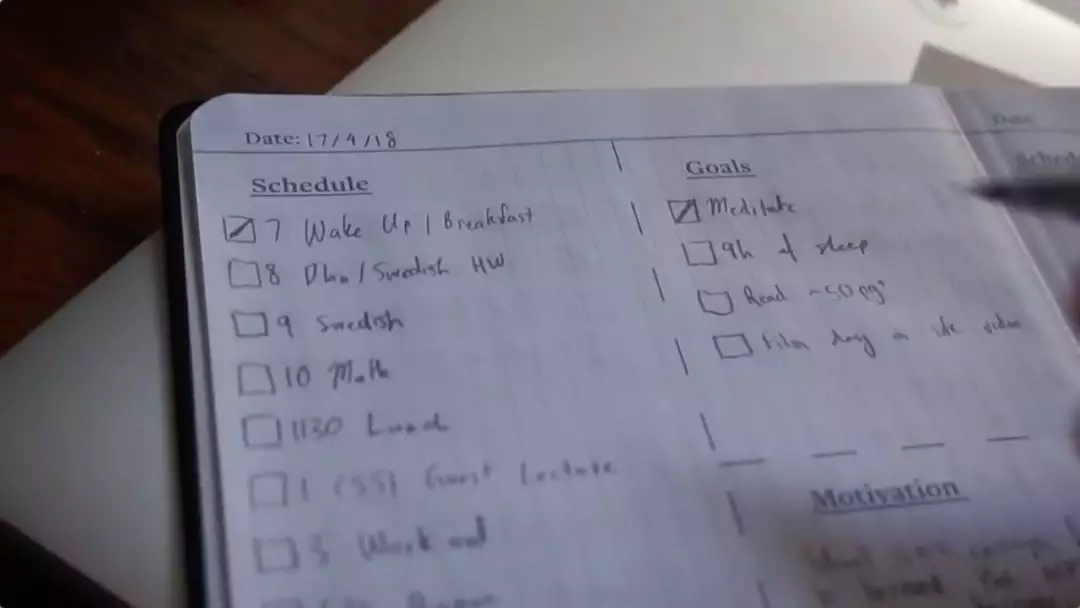 Date: 17/4/18
Schedule
7 Wake Up / Breakfast
8 / Swedish HW
9 Swedish
10 Math
1130 Lunch
1 Guest Lecture
3 Work out
Goals
Meditate
9h of sleep
Read ~50 pgs
Film day in
Motivation
Date
Sched